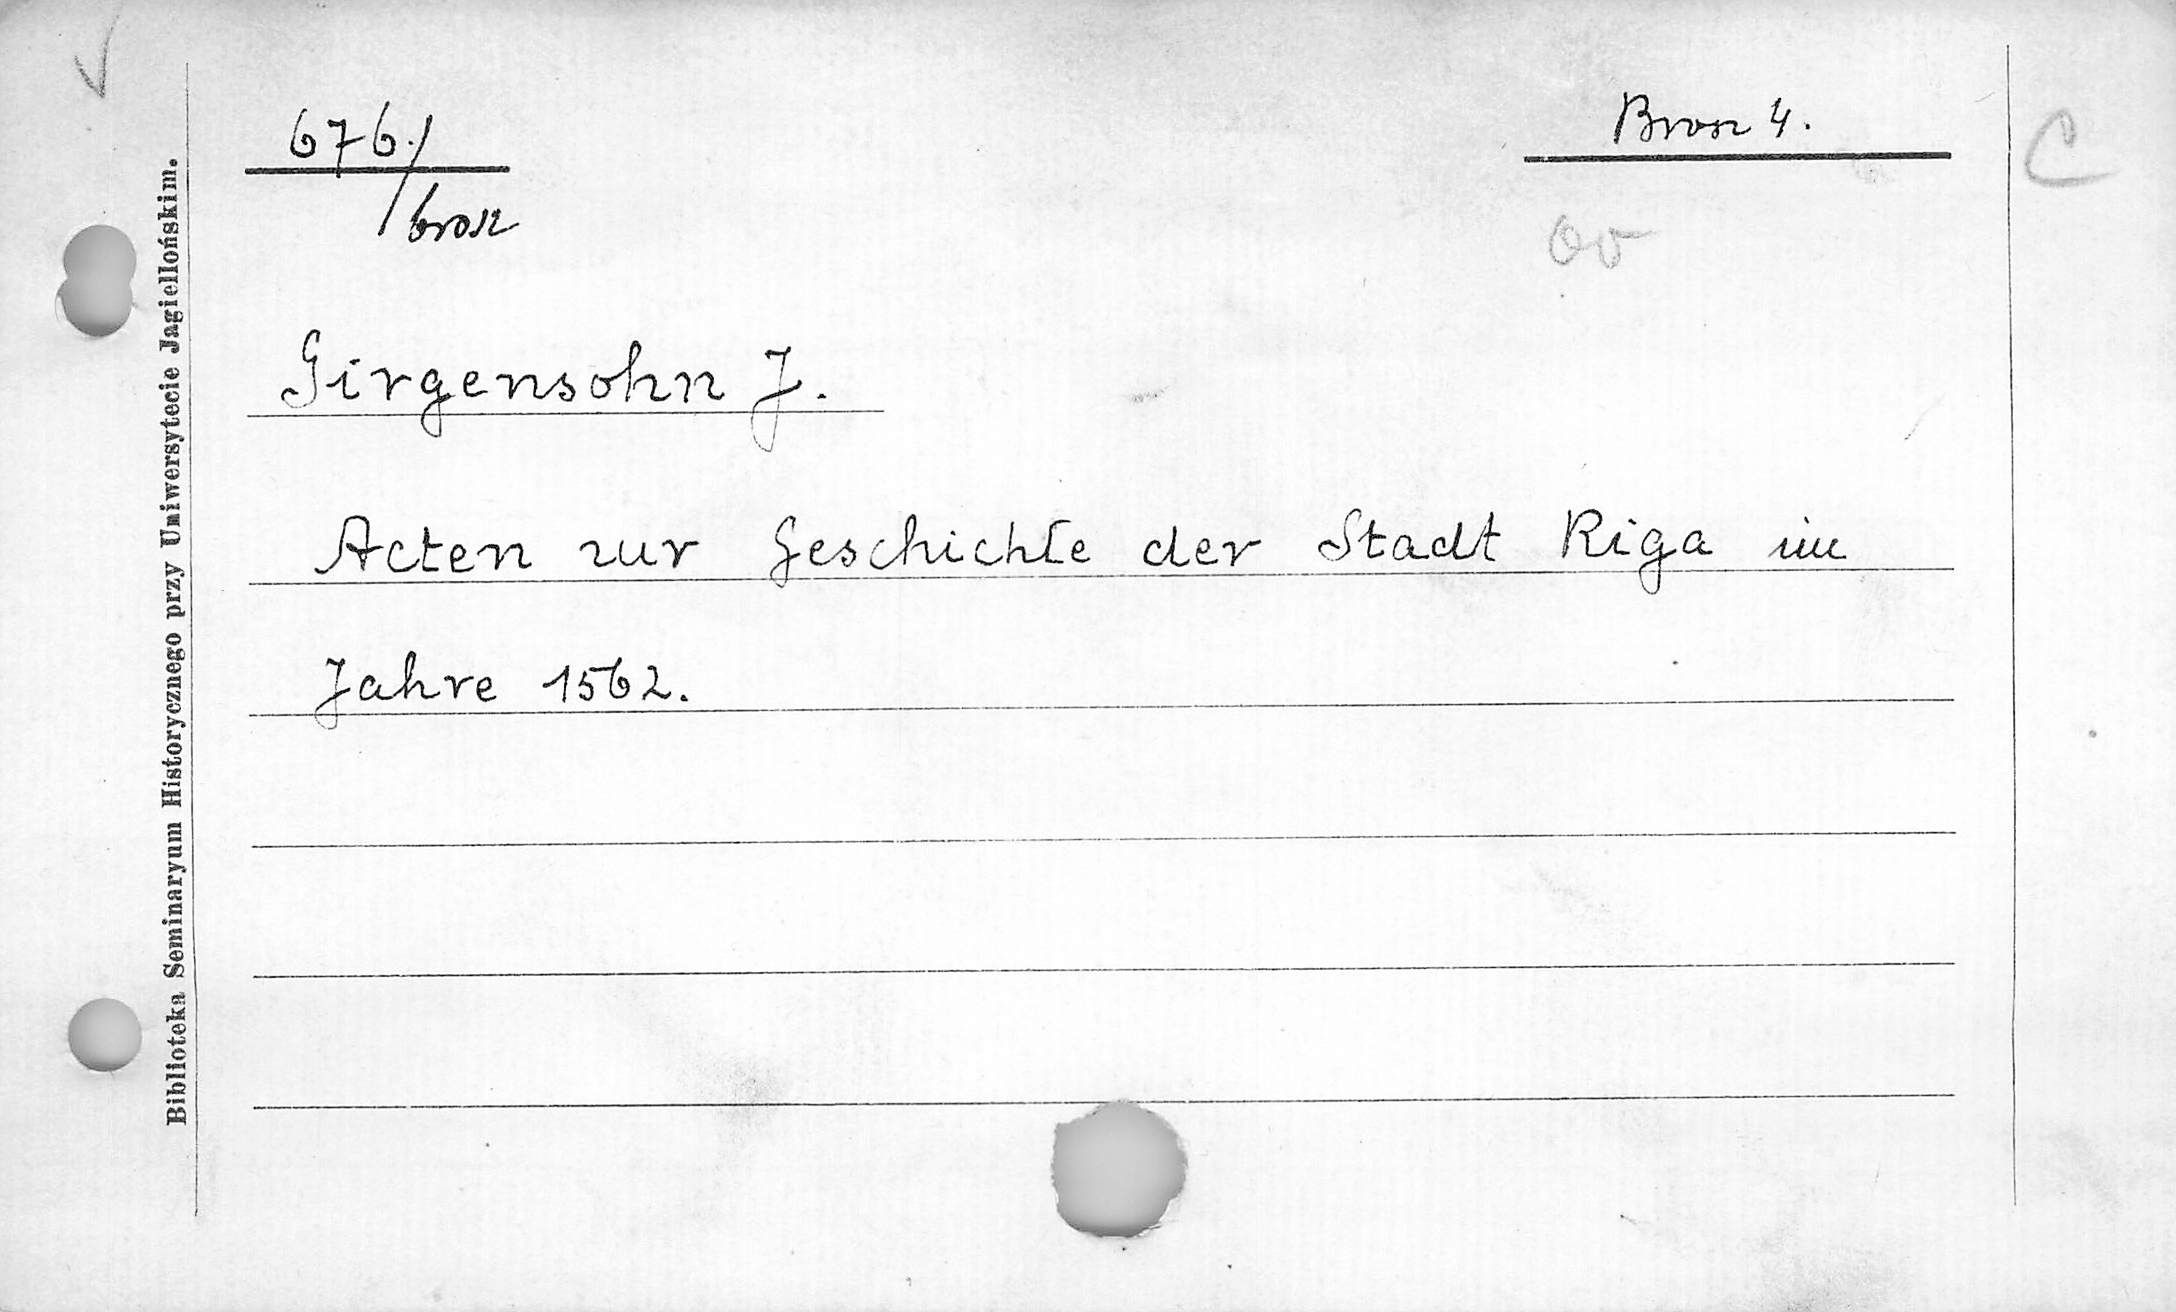 676./brosz
Brosz 4.
C
Girgensohn J.
Acten zur Geschichte der Stadt Riga im
Jahre 1562.
Biblioteka Seminaryum Historycznego przy Uniwersytecie Jagiellońskim.